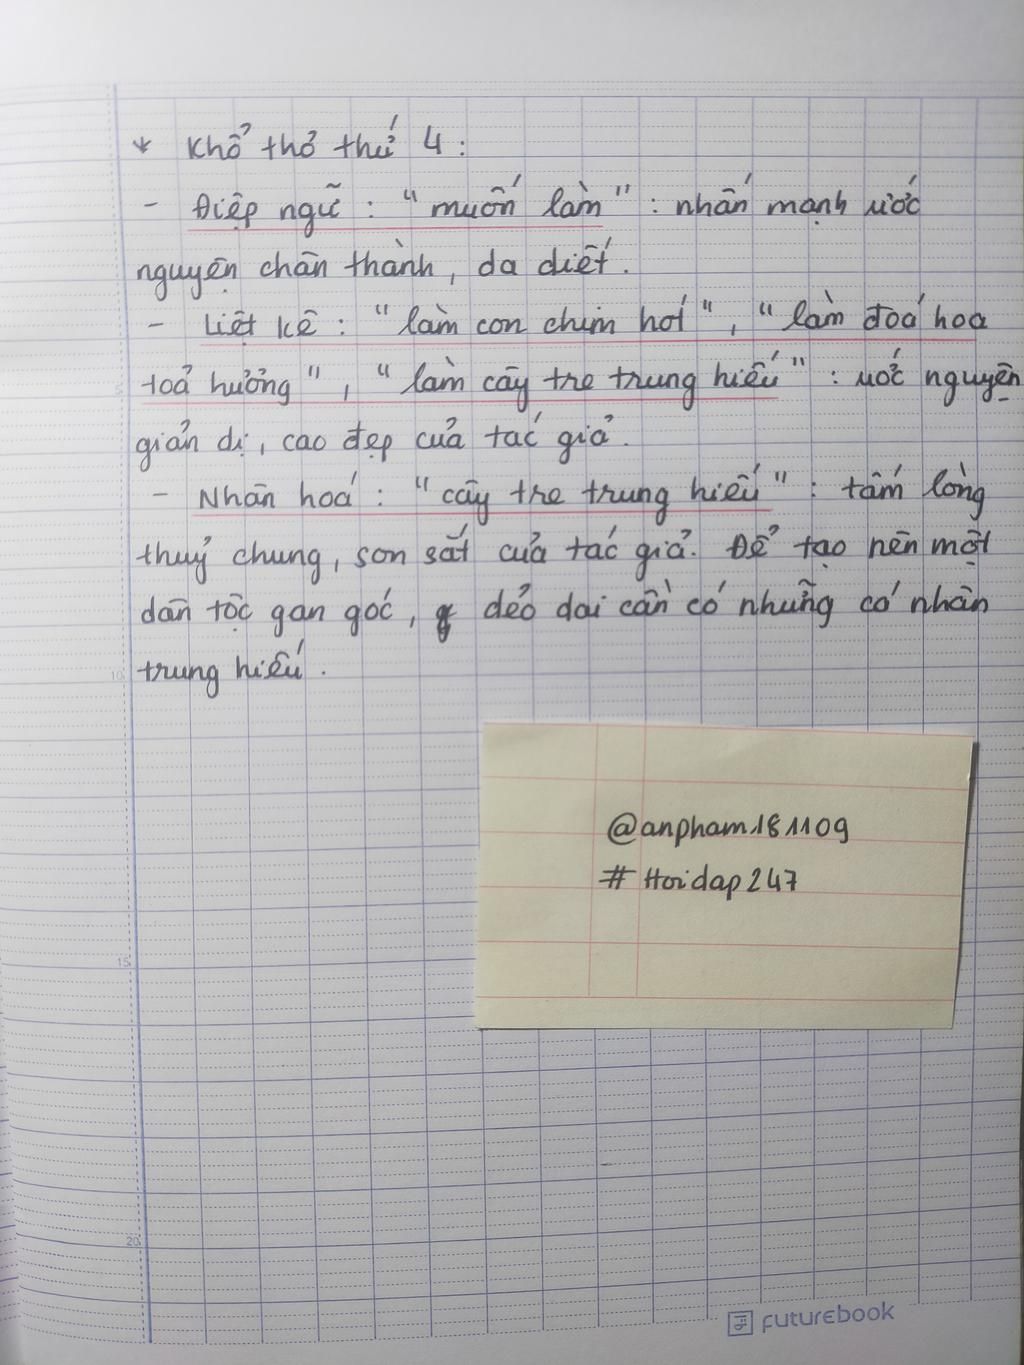 * Khổ thơ thứ 4 :
- Điệp ngữ : "muốn làm" : nhấn mạnh ước
nguyện chân thành, da diết.
- Liệt kê : "làm con chim hót", "làm đoá hoa
toả hương", "làm cây tre trung hiếu" : ước nguyện
giản dị, cao đẹp của tác giả.
- Nhân hoá : "cây tre trung hiếu" : tấm lòng
thuỷ chung, son sắt của tác giả. Để tạo nên một
dân tộc gan góc, dẻo dai cần có những cá nhân
trung hiếu.
@anpham181109
#Hoidap247
5
10
15
20
FUTUREBOOK